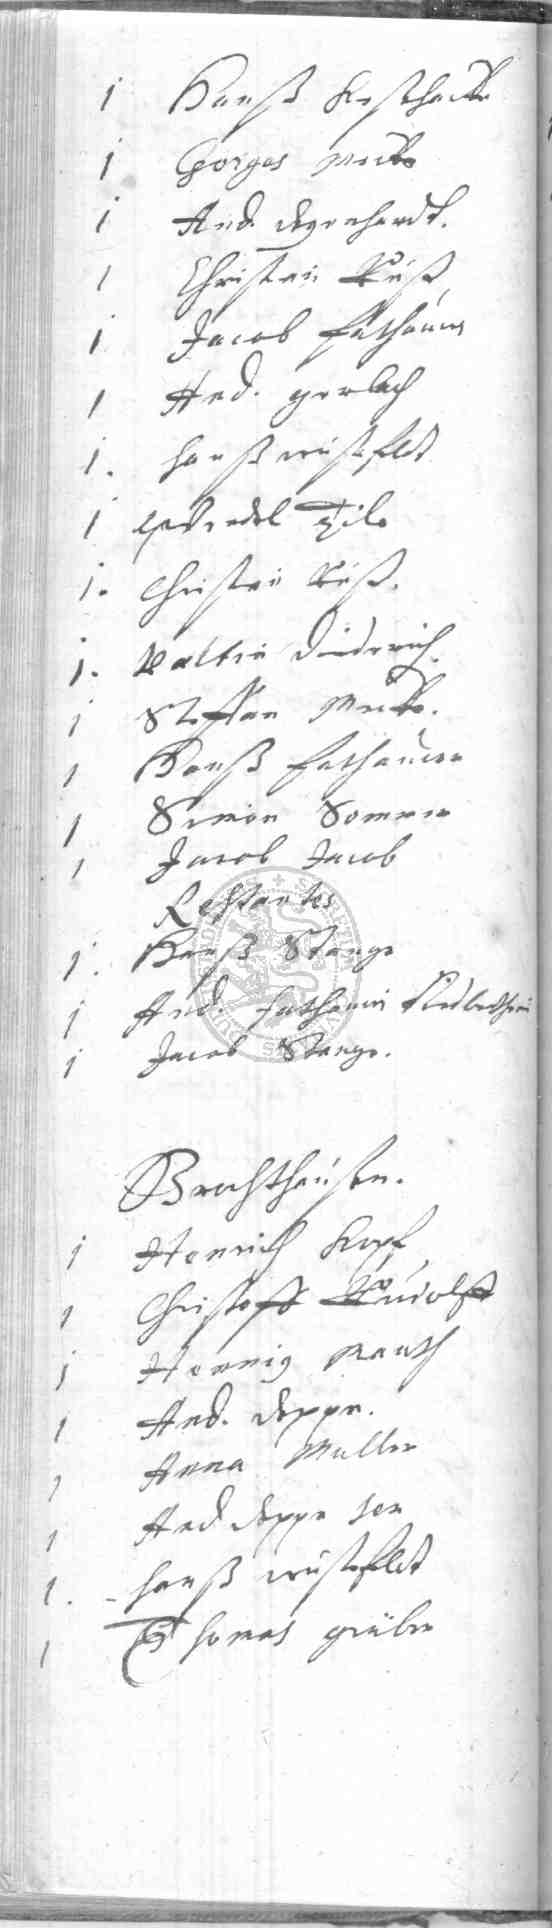 1 Hanß
1 Görges Mecke
1 And. degenhardt.
1 Christian Kuß
1 Jacob fathauer
1 And. gerlach
1. Hanß wüstefeldt
1 Tile
1. Christian Kuß.
1. Valtin Diederich
1 Steffan Mecke.
1 Hanß fathauer
1 Simon Sommer
1 Jacob Jacob
Restantes
1. Hanß Stange
1 And. fathauer
1 Jacob Stange.
Brochthausen.
1 Henrich Kopf
1 Christoff Rudolff
1 Hennig Mauth
1 And. deppe.
1 Anna Müller
1 And deppe sen
1. Hanß wüstefeldt
1 Thomas grüber